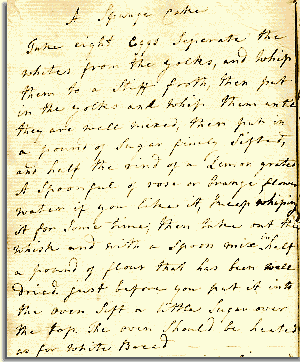 A Spunge Cake
Take eight Eggs Seperate the
whites from the yolks, and Whip
them to a Stiff froth, then put
in the yolks and Whip them until
they are well mixed, then put in
a pound of Sugar finely Sifted,
and half the rind of a Lemon grated
A Spoonful of rose or Orange flower
water if you like it, keep whiping
it for Some time, then take out the
whisk and with a Spoon mix in half
a pound of flour that has been well
dried just before you put it into
the oven Sift a little Sugar over
the top. the oven Should be heated
as for White Bread